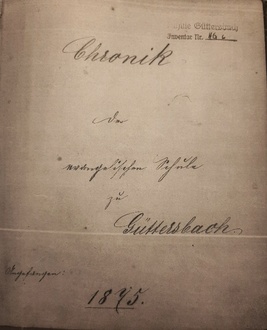 Güttersbach
Inventar Nr.
Chronik
der
evangelischen Schule
zu
Güttersbach
Angefangen:
1875.